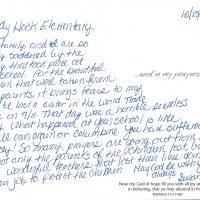 10/15
dy Hook Elementary,
family and we are so
ly saddened by the
that took place at
school. For the beautiful
ren that were taken from
parents, it brings tears to my
lost a sister in the World Trade
on 9/11. That day was a horrible senseless
what happened at your school is like
again or Columbine. You have suffered
So many prayers are going out from
not only the parents of the children lost, but
wonderful teachers that lost their lives doing
job to protect the children. May God be with
always
Susan
...and in my prayers
Now the God of hope fill you with all joy and
in believing, that ye may abound in hope
ROMANS 15:13 KJV